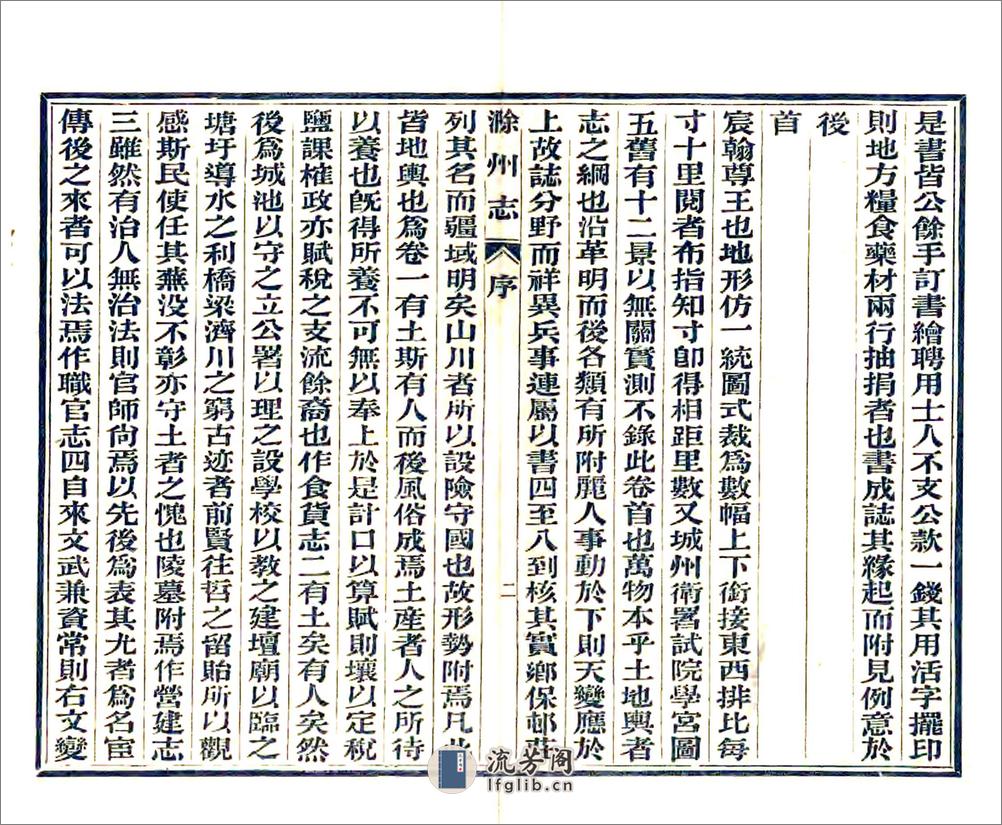 是書皆公餘手訂書繪聘用士人不支公款一錢其用活字擺印
則地方糧食藥材兩行抽捐者也書成誌其緣起而附見例意於
後
首
宸翰尊王也地形仿一統圖式裁為數幅上下銜接東西排比每
寸十里閱者布指知寸卽得相距里數又城州衛署試院學宮圖
五舊有十二景以無關實測不錄此卷首也萬物本乎土地輿者
志之綱也沿革明而後各類有所附麗人事動於下則天變應於
上故誌分野而祥異兵事連屬以書四至八到核其實鄉保邨莊
滁州志 序 二
列其名而疆域明矣山川者所以設險守國也故形勢附焉凡此
皆地輿也為卷一有土斯有人而後風俗成焉土産者人之所待
以養也旣得所養不可無以奉上於是計口以算賦則壤以定稅
鹽課榷政亦賦稅之支流餘裔也作食貨志二有土矣有人矣然
後為城池以守之立公署以理之設學校以教之建壇廟以臨之
塘圩導水之利橋梁濟川之窮古迹者前賢往哲之留貽所以觀
感斯民使任其蕪没不彰亦守土者之愧也陵墓附焉作營建志
三雖然有治人無治法則官師尙焉以先後為表其尤者為名宦
傳後之來者可以法焉作職官志四自來文武兼資常則右文變
流芳阁
lfglib.cn